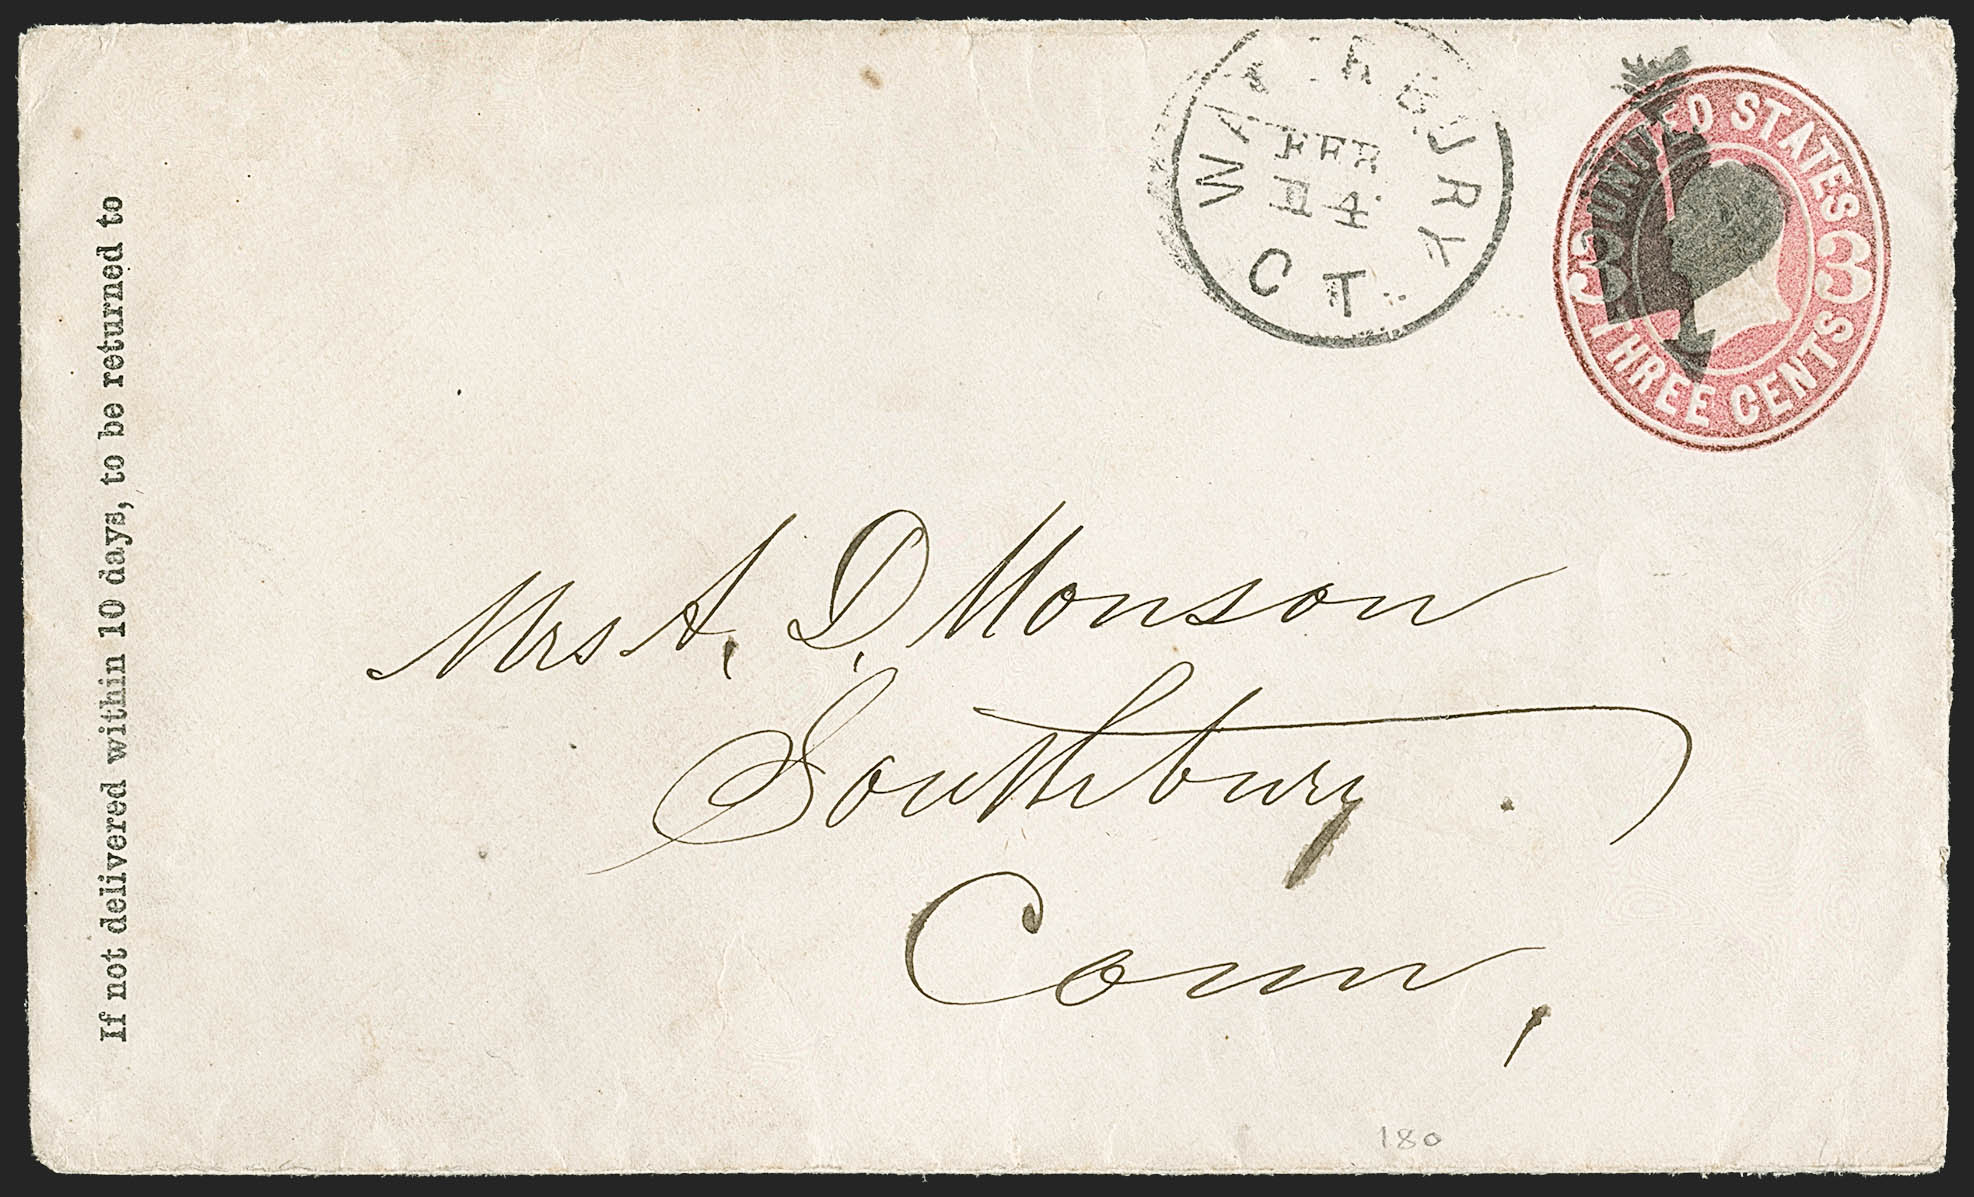 If not delivered within 10 days, to be returned to
WATERBURY
FEB
14
CT.
UNITED STATES
3 3
THREE CENTS
Mrs A. D. Monson
Southbury
Conn,
180